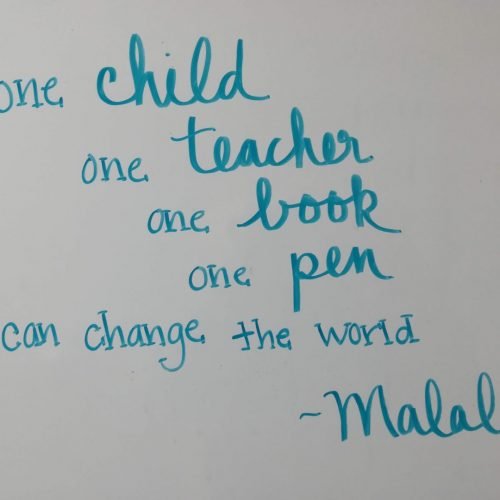 one child
one teacher
one book
one pen
can change the world
~Malal